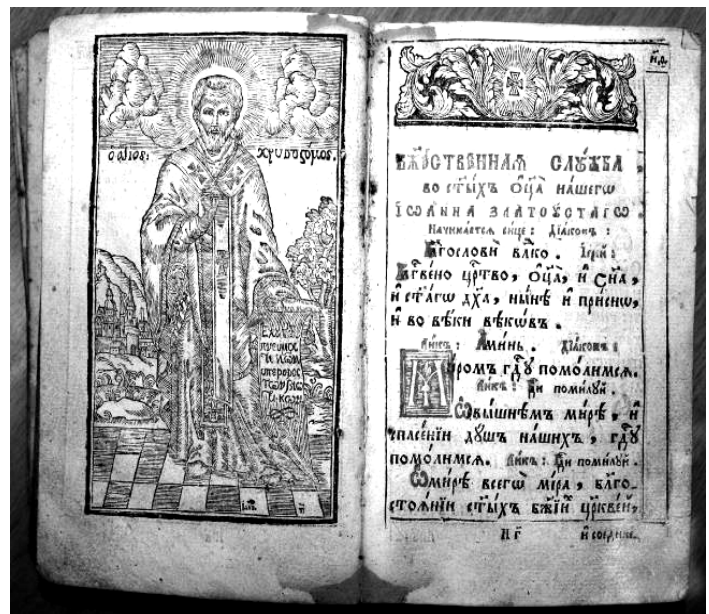 ὁ ἅγιος: χρυσοςομος.
н҃ѳ.
БЖ҃ЕСТВЕННАѦ СЛꙊЖБА
во ст҃ы́хъ Ѻц҃а̀ на́шегѡ
ІѠА́ННА ЗЛАТОꙊ́СТАГѠ
Начина́етсѧ си́це: Дїа́конъ:
Бл҃гослови̑ влⷣко. Іере́й:
Бл҃гве́но црⷭ҇тво, Ѻц҃а̀, и҆ Сн҃а,
и҆ ст҃а́гѡ дх҃а, ны́нѣ и҆ при́снѡ,
и҆ во вѣ́ки вѣкѡ́въ.
Ли́къ: А҆ми́нь. Дїа́конъ:
Миромъ гдⷭ҇ꙋ помо́лимсѧ.
Ли́къ: Гд҃и поми́лꙋй.
Ѡ вы́шнѣмъ ми́рѣ, и҆
спасе́нїи дꙋ́шъ на́шихъ, гдⷭ҇ꙋ
помо́лимсѧ. Ли́къ: Гд҃и поми́лꙋй.
Ѡ ми́рѣ всегѡ̀ ми́ра, бл҃го-
стоѧ́нїи ст҃ы́хъ бж҃їихъ цр҃кве́й,
н г҃ и҆ соедине.